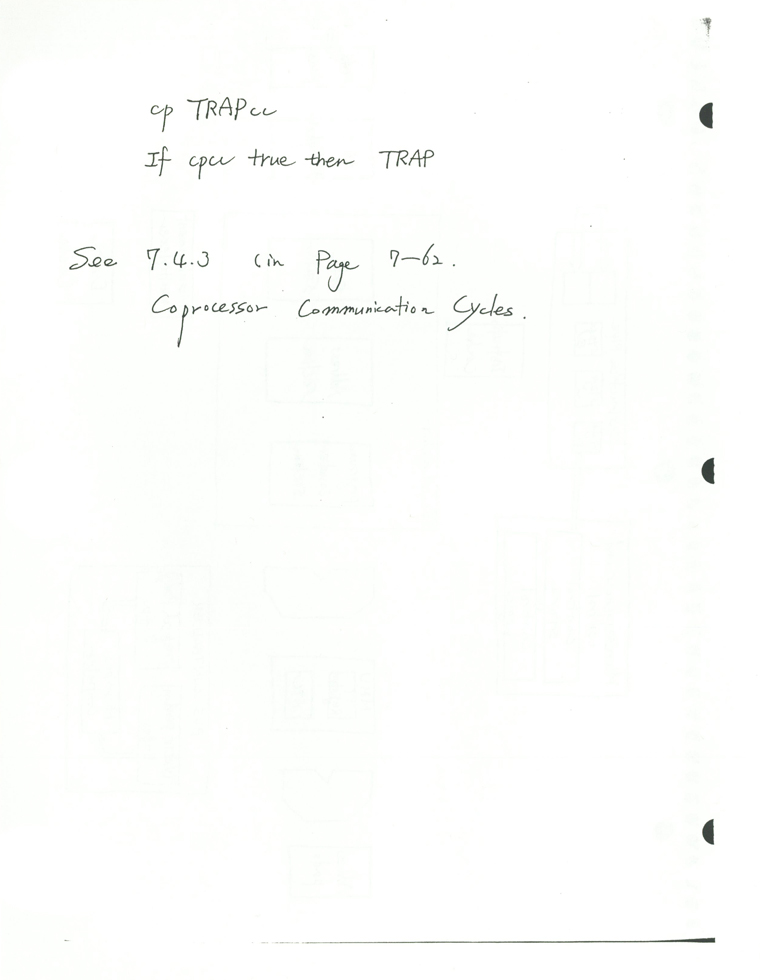 cp TRAPcc
If cpcc true then TRAP
See 7.4.3 (in Page 7-62.
Coprocessor Communication Cycles.